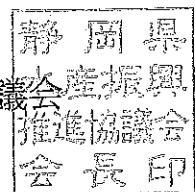 静岡県
議会
水産振興
推進協議会
会長印